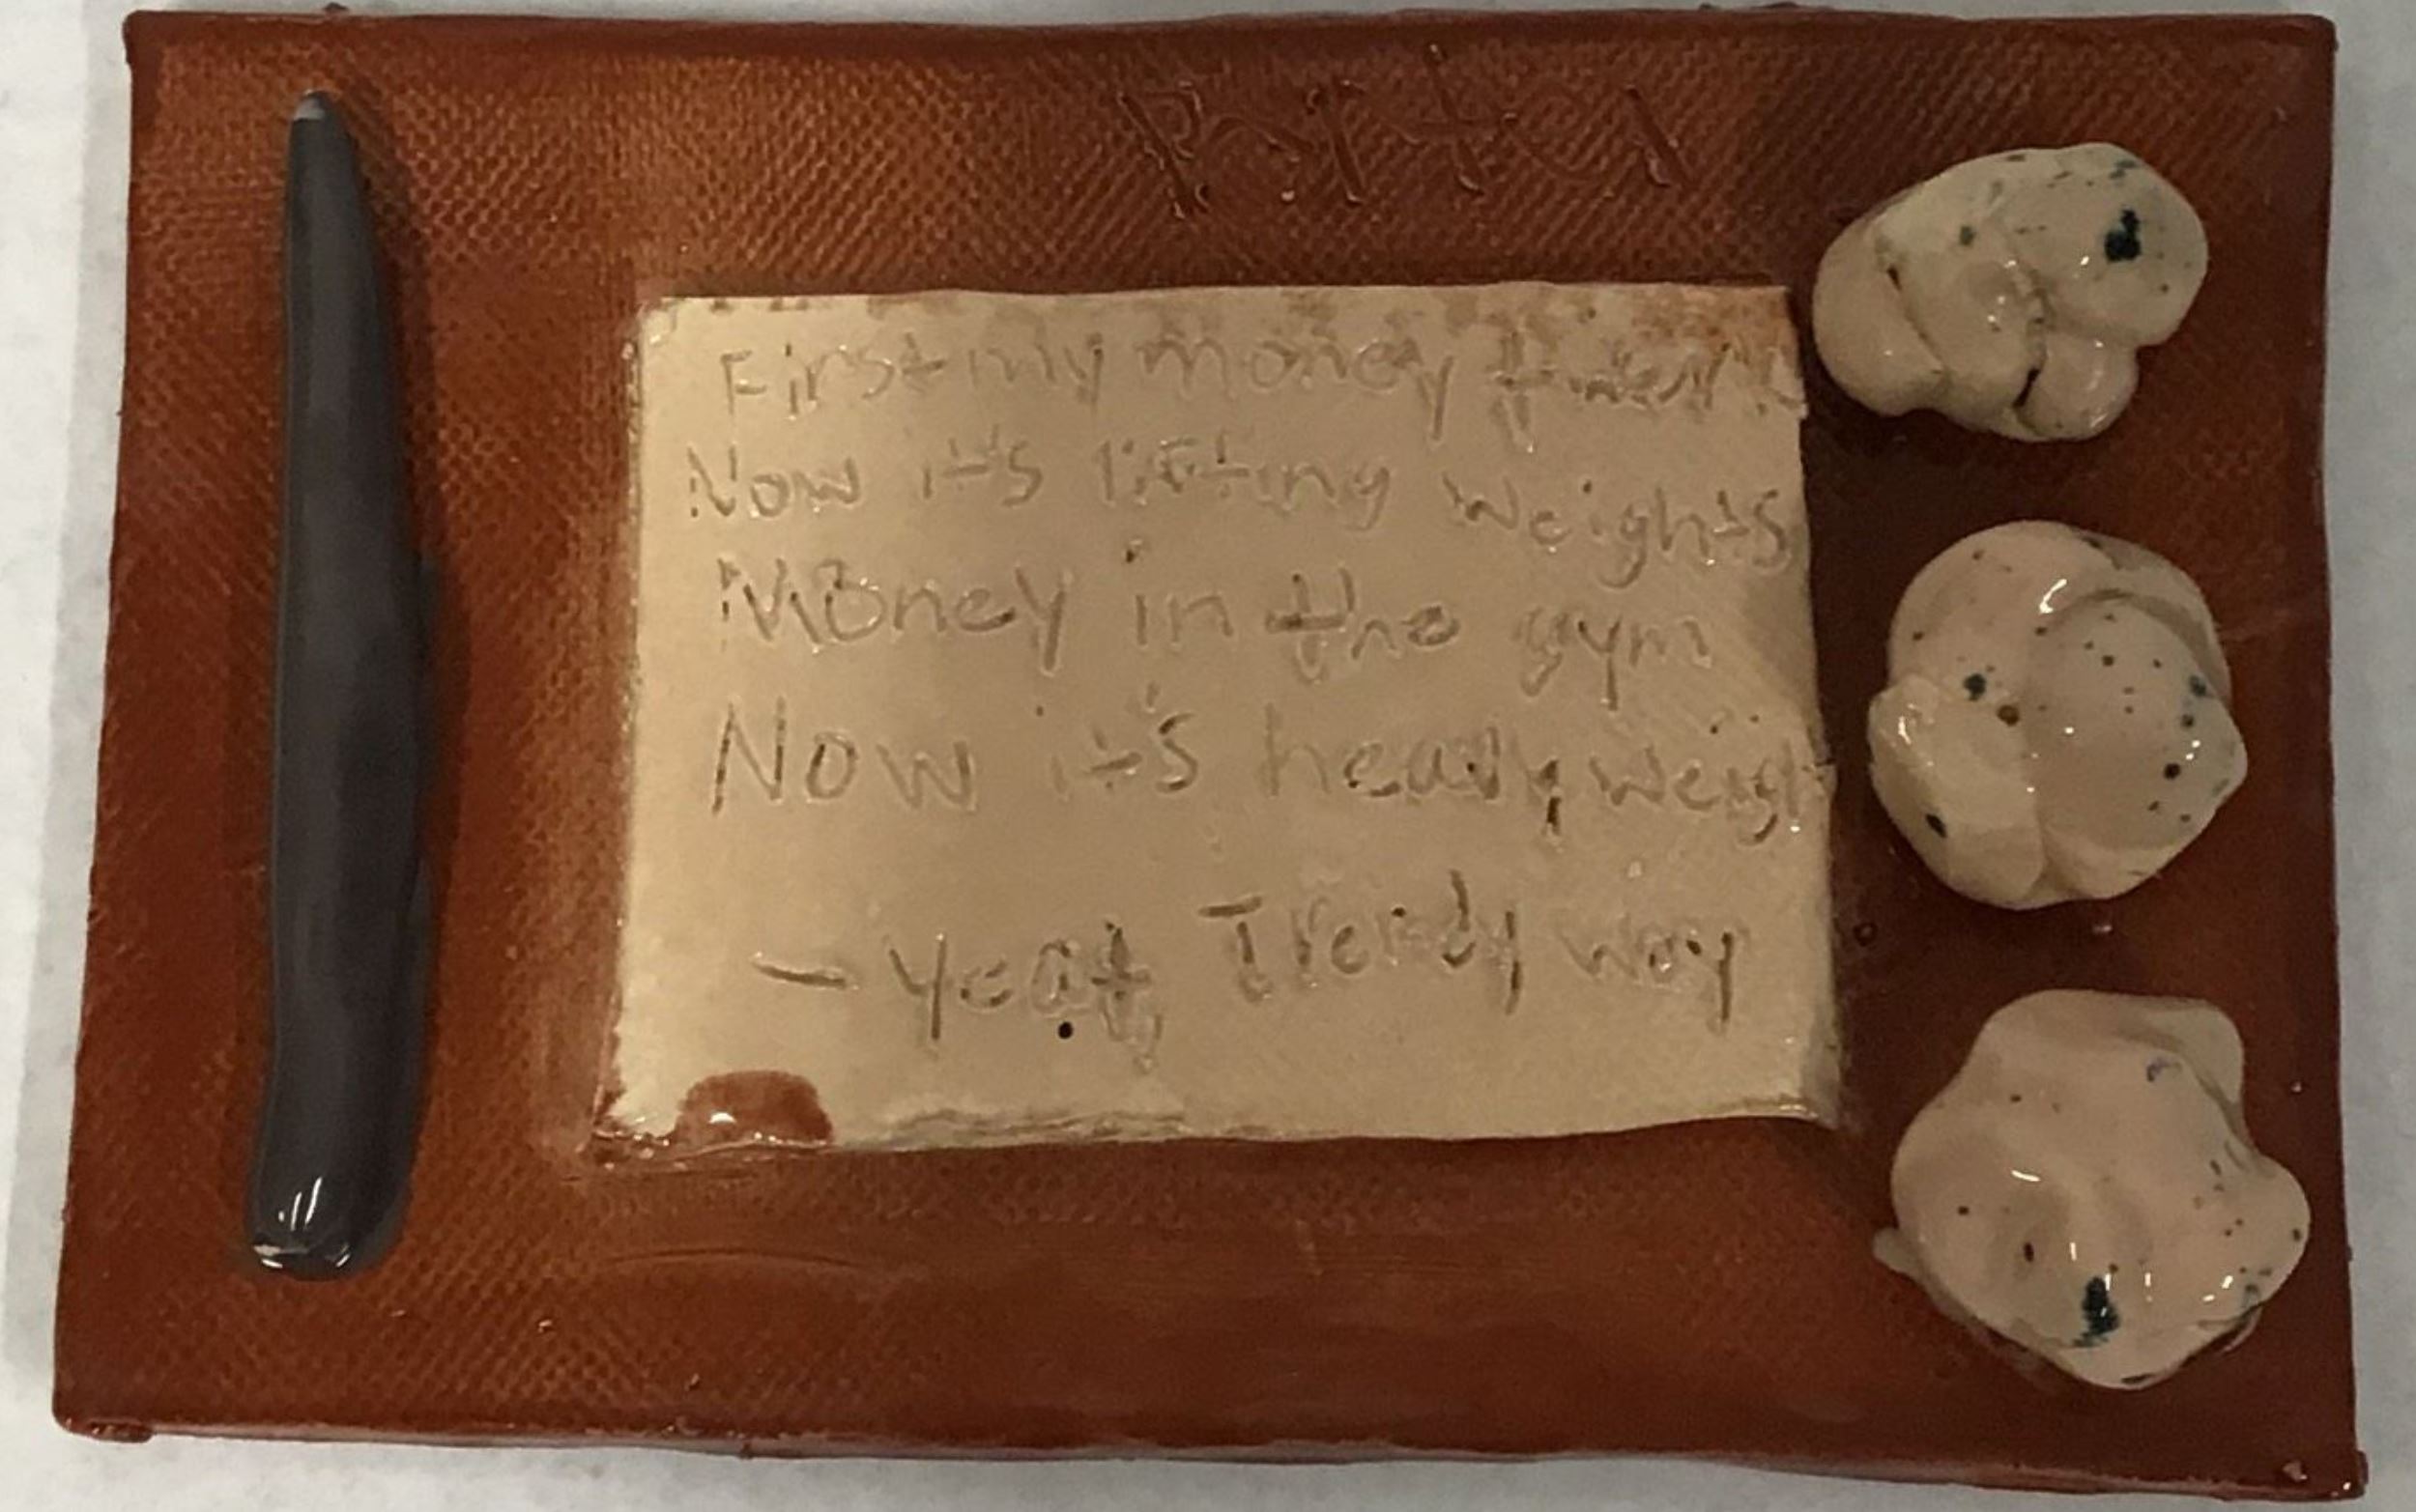 First my money
Now it's lifting weights
Money in the gym
Now it's heavy weigh
- Yeat, Trendy way